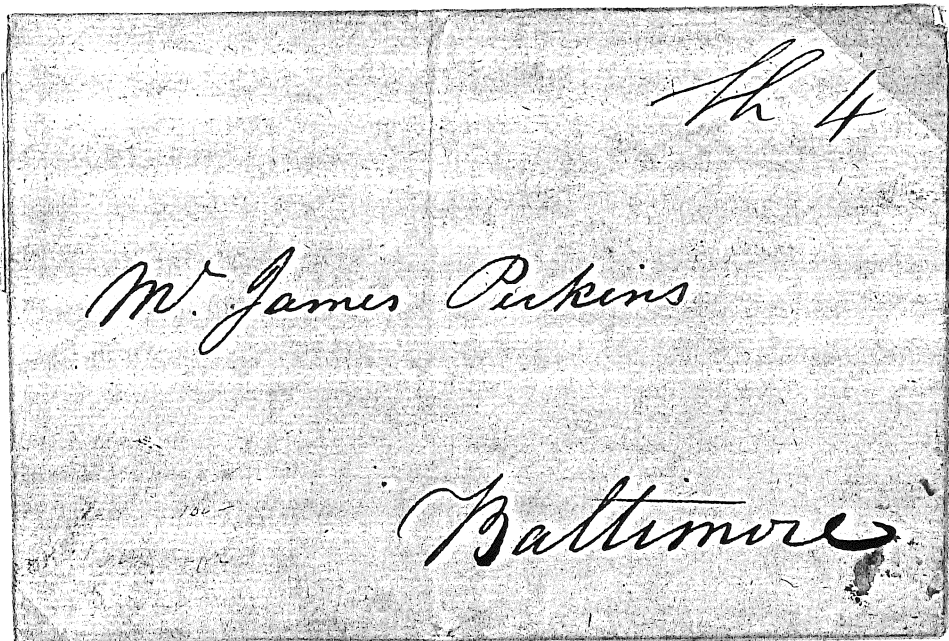 Sh 4
Mr. James Perkins
Baltimore